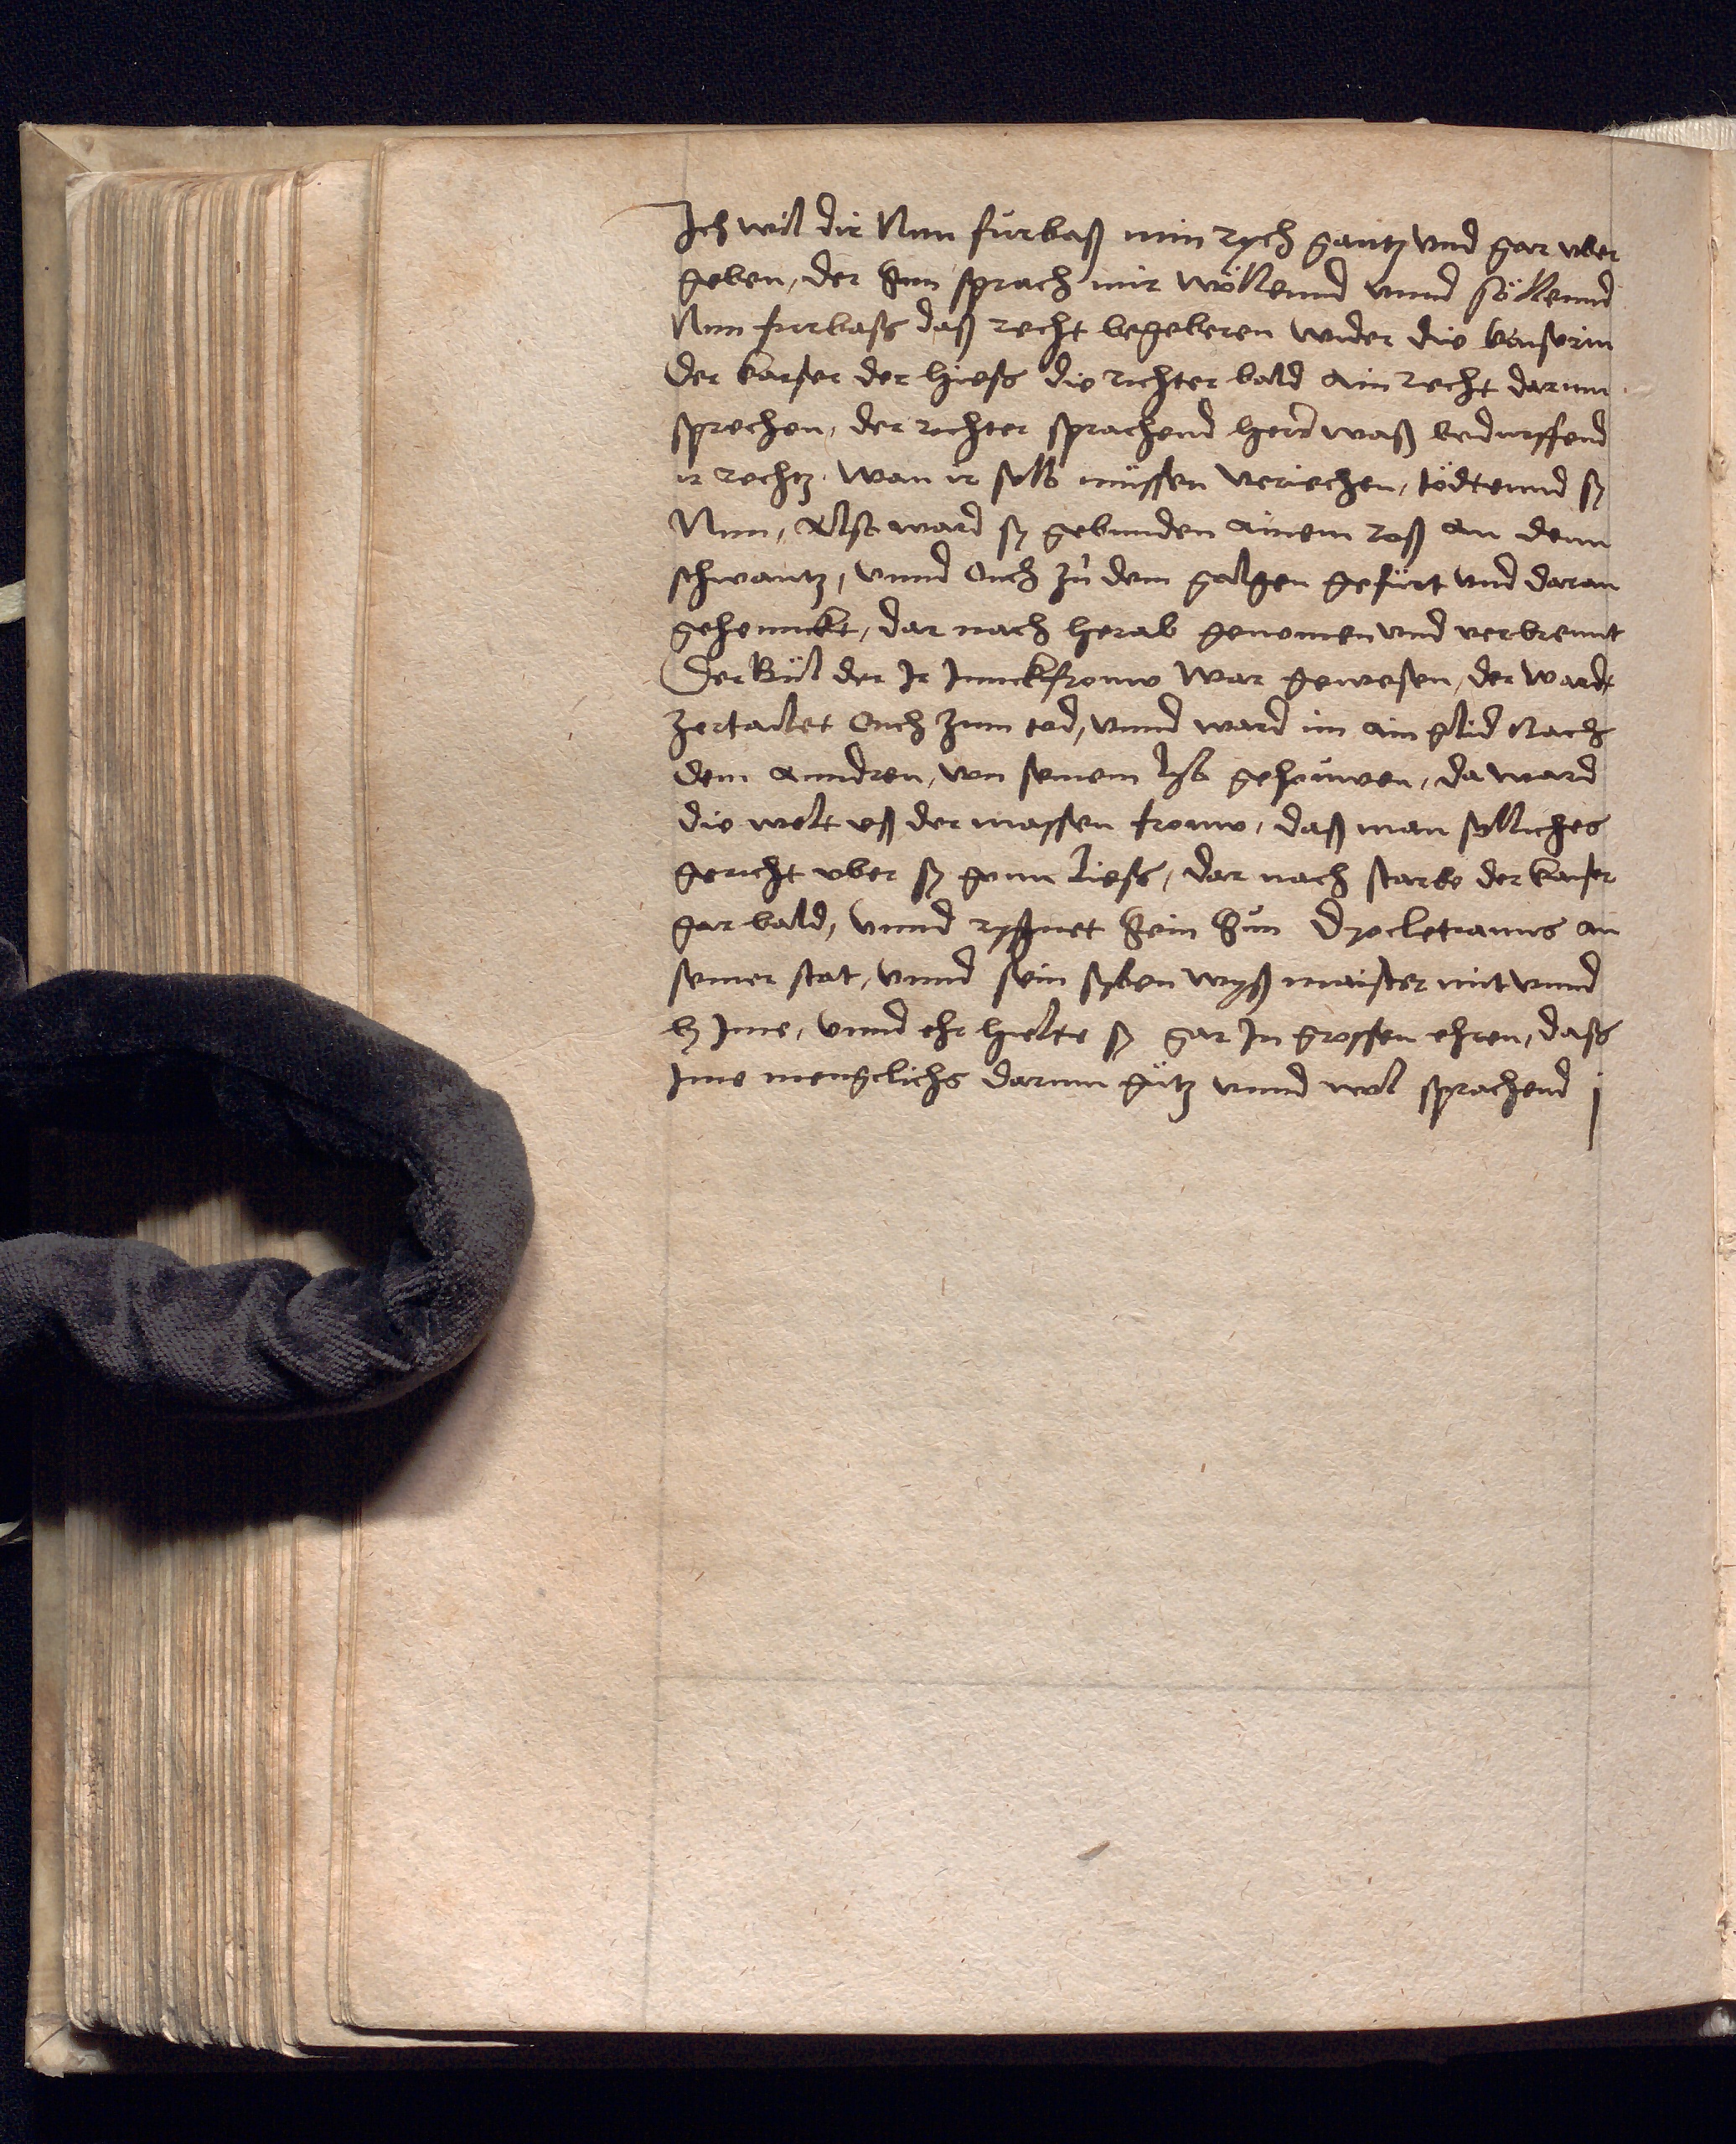 Ich wil dir Nun fürbaß min rych gantz vnd gar vber
geben, der Sun sprach mir wöllennd vnnd söllennd
Nun furbass daß recht begeberen wider die kaiserin
Der kaiser der hiess die richter bald ain recht darum
sprechen, der richter sprachend herr waß bedurffend
ir rechtz. wan ir selb müssen veriechen, tödtennd sy
Nun, Also ward sy gebunden ainem roß an denn
schwantz, vnnd Ouch zů dem galgen gefürt vnd daran
gehennckt, dar nach herab genomen vnd verbrennt
Der Bůl der Ir Junckfrouw war gewesen, der wardt
zertailet Ouch zum tod, vnnd ward im ain glid Nach
dem anndren, von seinem lyb gehouwen, da ward
die welt vß der massen frouw, daß man sölliches
gericht vber sy gonn liess, dar nach starbe der kaiser
gar bald, vnnd rychsnet Sein Sun Dyocletianus an
seiner stat, vnnd sein syben wyß maister mit vnnd
by Ime, vnnd ehr hielte sy gar In grossen ehren, dass
Ime mengclichs darum gůtz vnnd wol sprachend